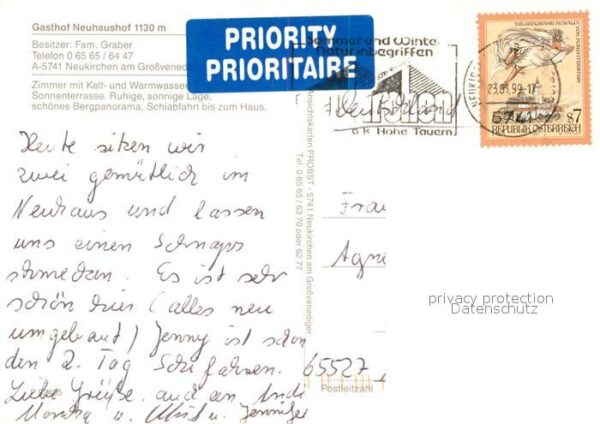 Gasthof Neuhaushof 1130 m
Besitzer: Fam. Graber
Telefon 0 65 65 / 64 47
A-5741 Neukirchen am Großvenediger
Zimmer mit Kalt- und Warmwasser
Sonnenterrasse. Ruhige, sonnige Lage,
schönes Bergpanorama, Schiabfahrt bis zum Haus.
PRIORITY
PRIORITAIRE
Sommer und Winter
Naturinbegriffen
a.k. Hohe Tauern
Deutschland
23.03.99-17
5741
REPUBLIK ÖSTERREICH
S7
Heute sitzen wir
zwei gemütlich im
Neuhaus und lassen
uns einen Schnaps
schmecken. Es ist sehr
schön hier (alles neu
umgebaut) Jenny ist schon
den 2. Tag Schifahren.
Liebe Grüße auch an
Monika u. u. Jennifer
Ansichtskarten PROBST - 5741 Neukirchen am Großvenediger
Tel. 0 65 65 / 63 70 oder 62 77
Frau
Agne
65527
Postleitzahl
privacy protection
Datenschutz